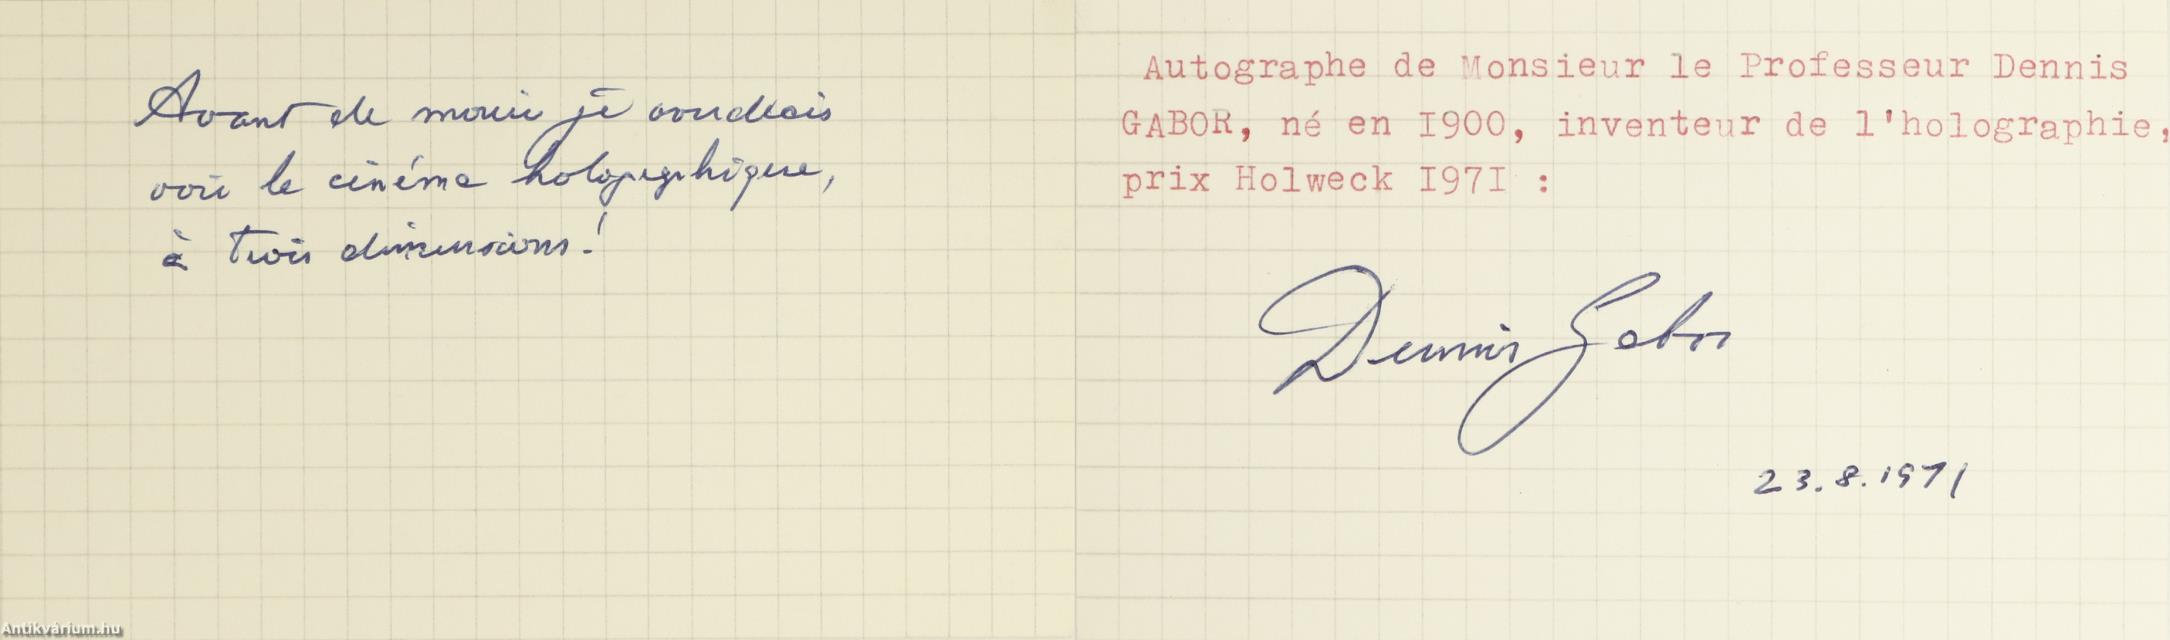 Avant de mourir je voudrais
voir le cinéma holographique,
à trois dimensions!
Autographe de Monsieur le Professeur Dennis
GABOR, né en I900, inventeur de l'holographie,
prix Holweck I97I :
Dennis Gabor
23.8.1971
Antikvárium.hu